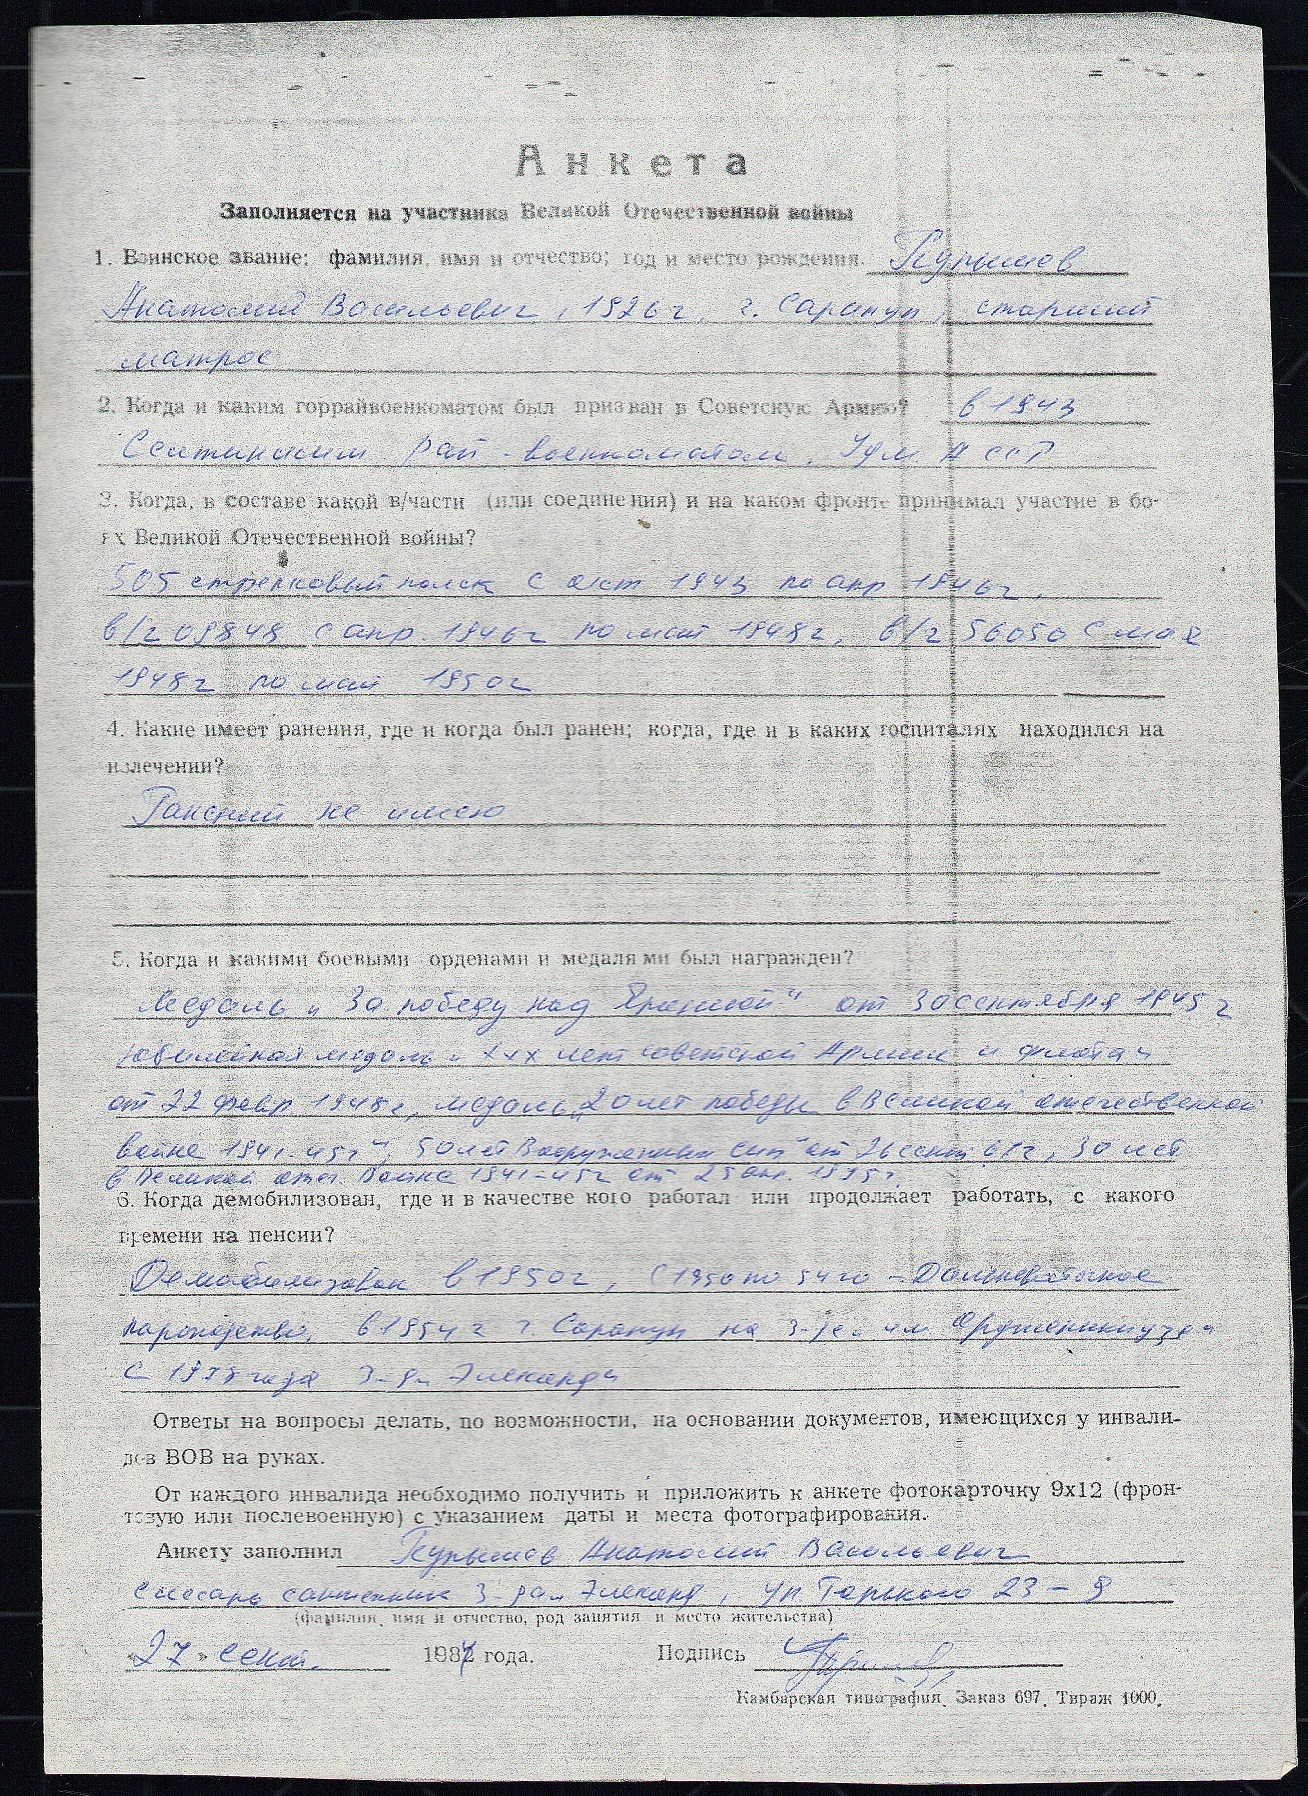 Анкета
Заполняется на участника Великой Отечественной войны
1. Воинское звание; фамилия, имя и отчество; год и место рождения.
Анатолий Васильевич, 1926 г, г. Сарапул, старший
матрос
2. Когда и каким горрайвоенкоматом был призван в Советскую Армию? в 1943
рай-военкоматом, Удм. АССР
3. Когда, в составе какой в/части (или соединения) и на каком фронте принимал участие в бо-
ях Великой Отечественной войны?
505 стрелковый полк с окт 1943 по апр 1946 г,
в/ч 09848 с апр. 1946 г по май 1948 г, в/ч 56050 с мая
1948 г по май 1950 г
4. Какие имеет ранения, где и когда был ранен; когда, где и в каких госпиталях находился на
излечении?
Ранений не имею
5. Когда и какими боевыми орденами и медалями был награжден?
Медаль „За победу над Японией" от 30 сентября 1945 г
юбилейная медаль „ХХХ лет советской Армии и флота"
от 22 февр 1948 г, медаль „20 лет победы в Великой отечественной
войне 1941-45 г", 50 лет Вооруженных сил" от 30 лет
в Великой отеч. Войне 1941-45 г от 25 1975 г.
6. Когда демобилизован, где и в качестве кого работал или продолжает работать, с какого
времени на пенсии?
Демобилизован в 1950 г, с 1950 по 54 го - Дальневосточное
пароходство, в 1954 г г Сарапул на з-де им Орджоникидзе
с года з-д Элеконд
Ответы на вопросы делать, по возможности, на основании документов, имеющихся у инвали-
дов ВОВ на руках.
От каждого инвалида необходимо получить и приложить к анкете фотокарточку 9х12 (фрон-
товую или послевоенную) с указанием даты и места фотографирования.
Анкету заполнил Анатолий Васильевич
слесарь сантехник з-да Элеконд, ул. Горького 23 - 8
(фамилия, имя и отчество, род занятия и место жительства)
«27» сент. 1987 года. Подпись
Камбарская типография. Заказ 697. Тираж 1000.